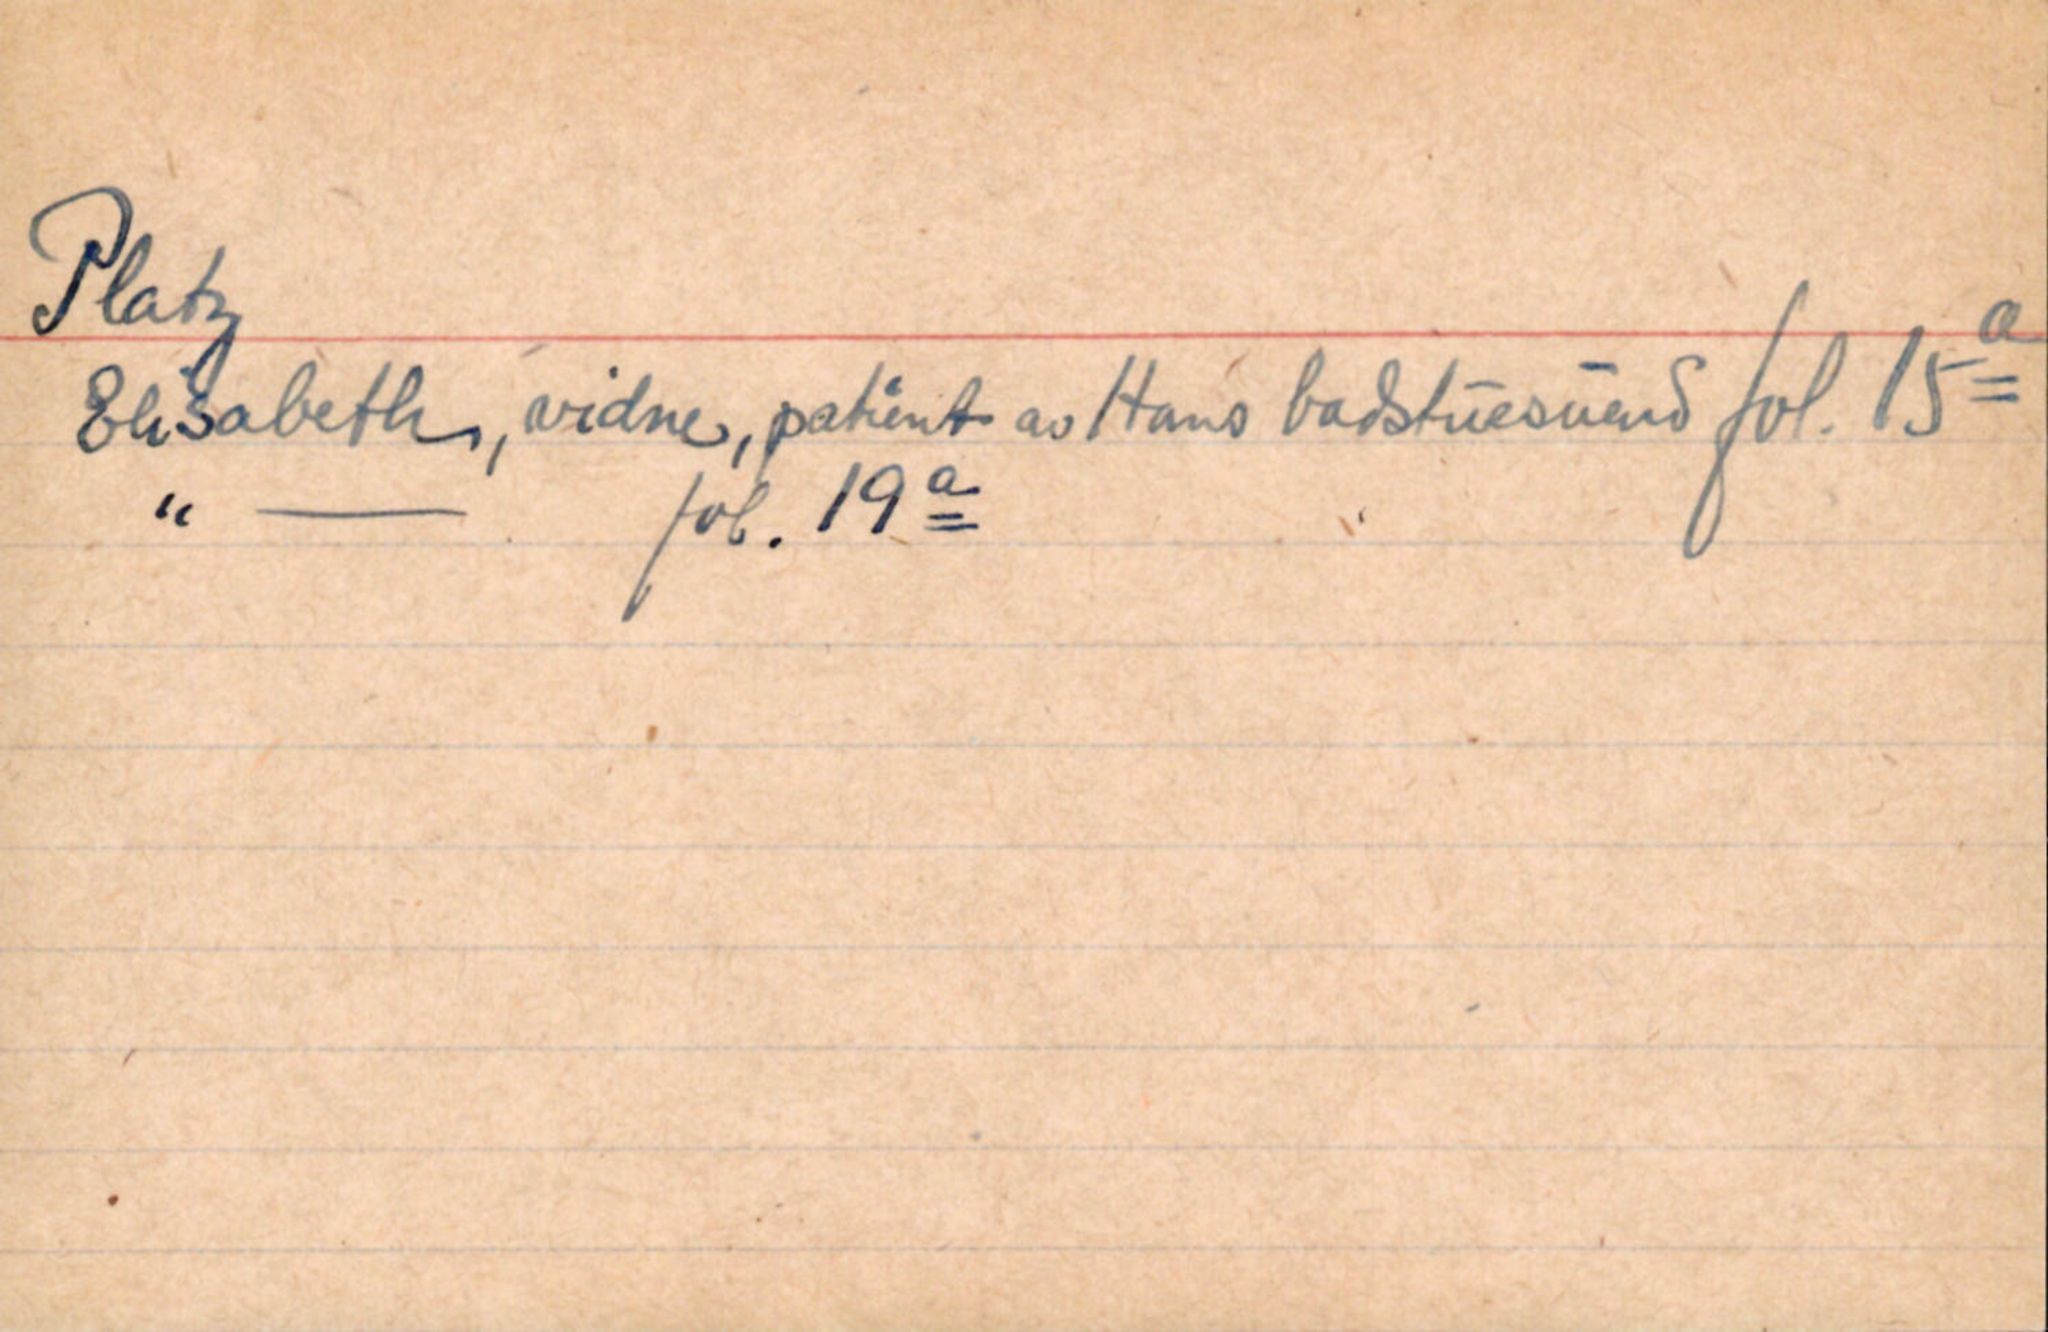 Platz
Elisabeth, vidne, patient av Hans badstuesuend fol. 15a
" — fol. 19a